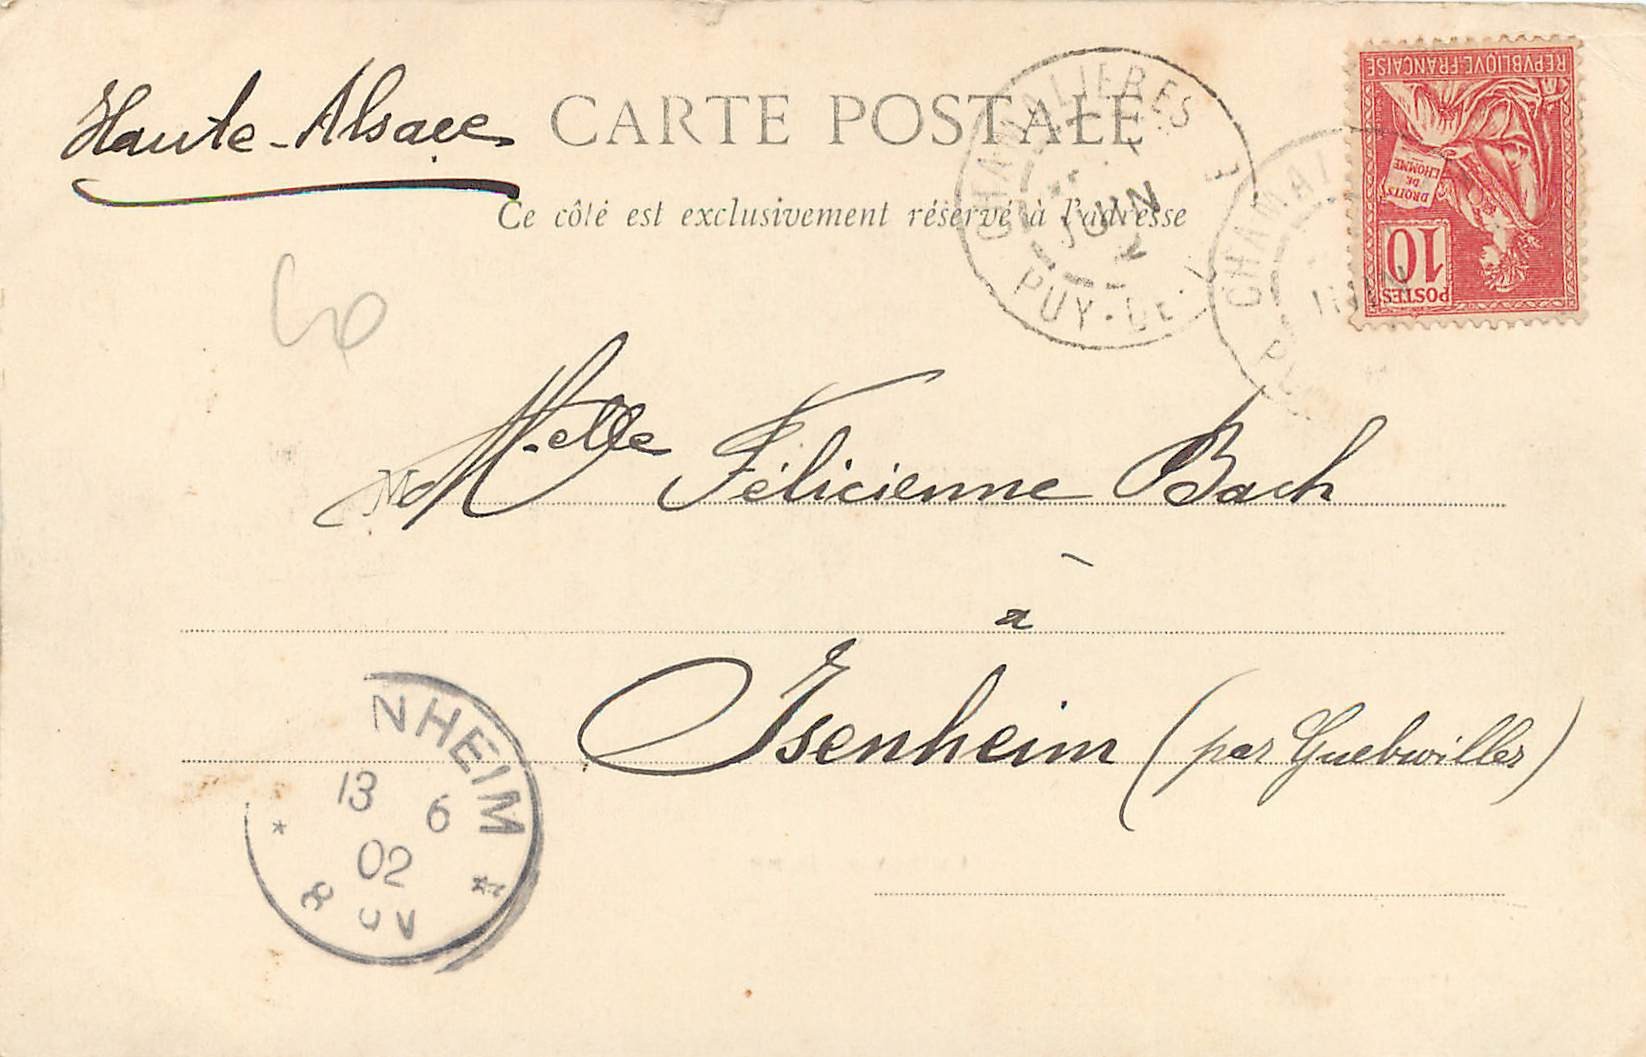 Haute-Alsace
CARTE POSTALE
Ce côté est exclusivement réservé à l'adresse
CHAMALIERES
JUIN
PUY-DE-
CHAMAL
REPVBLIQVE FRANÇAISE
DROITS
DE
L'HOMME
10
POSTES
60
M Melle Félicienne Bach
à
Isenheim (par Guebwiller)
NHEIM
13 6
02
8 9 V